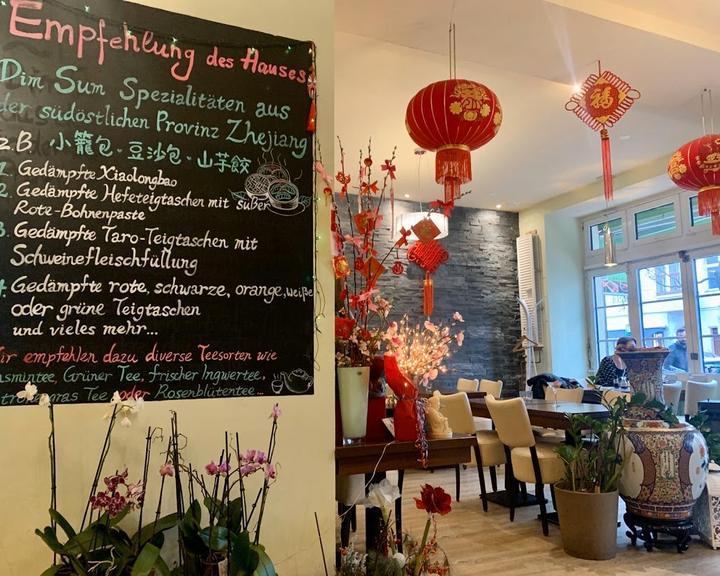 Empfehlung des Hauses
Dim Sum Spezialitäten aus
der südöstlichen Provinz Zhejiang
z.B. 小籠包、豆沙包、山芋餃
1. Gedämpfte Xiaolongbao
2. Gedämpfte Hefeteigtaschen mit süßer
Rote-Bohnenpaste
3. Gedämpfte Taro-Teigtaschen mit
Schweinefleischfüllung
4. Gedämpfte rote, schwarze, orange, weiße
oder grüne Teigtaschen
und vieles mehr...
Wir empfehlen dazu diverse Teesorten wie
Jasmintee, Grüner Tee, frischer Ingwertee,
Zitronengras Tee oder Rosenblütentee...
福